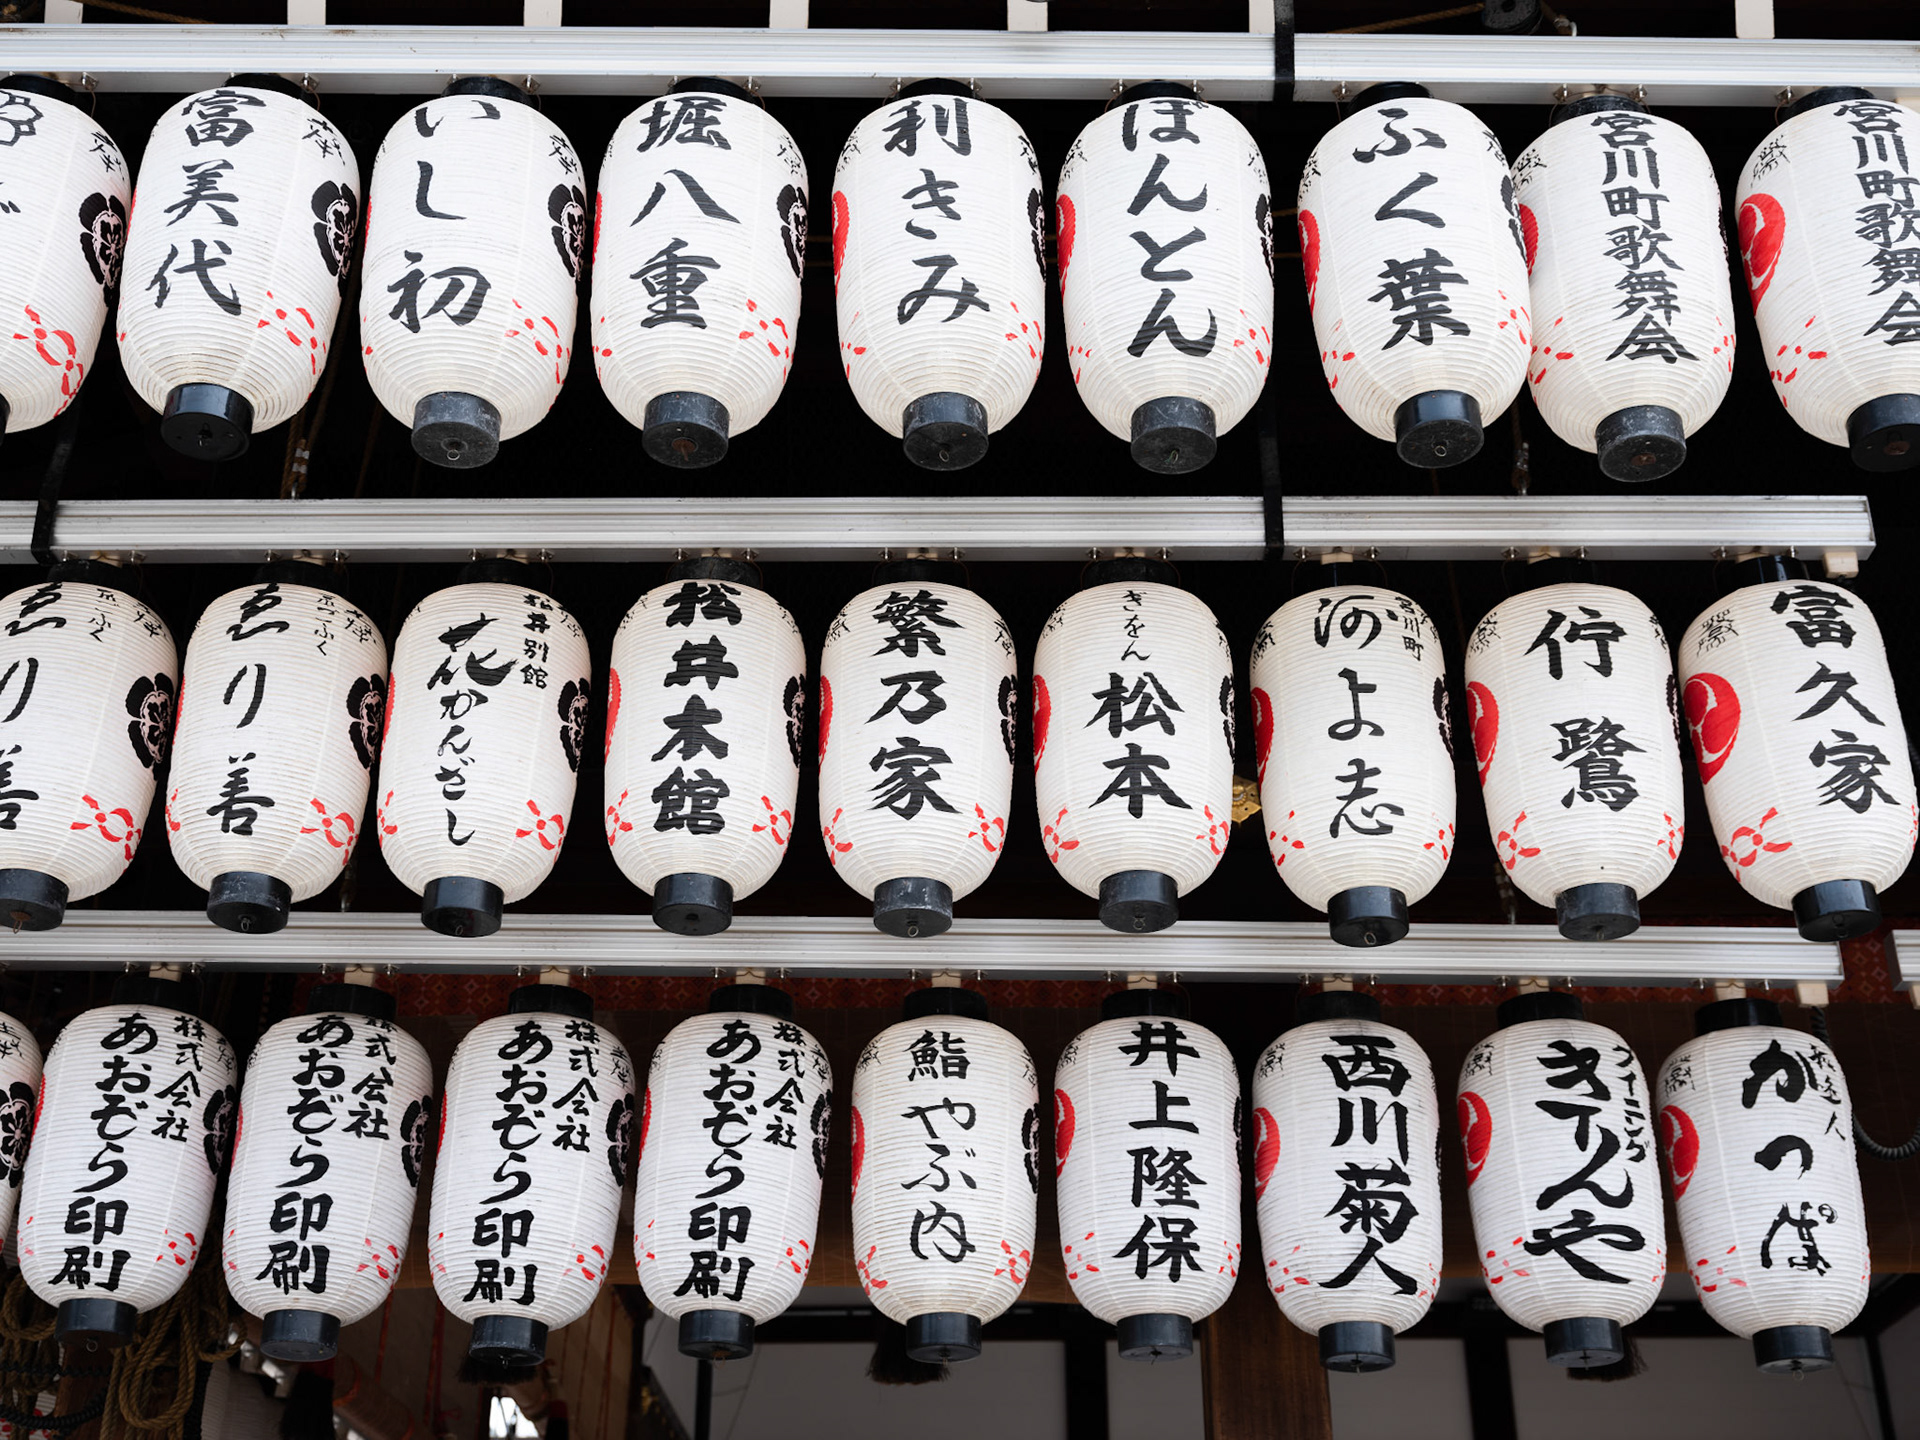 富美代
いし初
堀八重
利きみ
ぼんとん
ふく葉
宮川町歌舞会
宮川町歌舞会
ゑり善
京ごふく
ゑり善
松井別館
花かんざし
松井本館
繁乃家
ぎをん
松本
宮川町
河よ志
佇鷺
富久家
株式会社
あおぞら印刷
株式会社
あおぞら印刷
株式会社
あおぞら印刷
株式会社
あおぞら印刷
鮨
やぶ内
井上隆保
西川菊人
きりんや
かつぱ